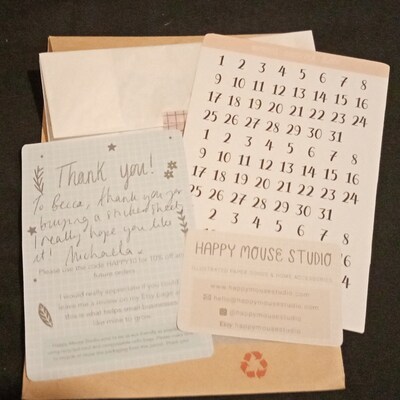 Thank you!
To Becca, thank you for
buying a sticker sheet,
I really hope you like
it! Michaela.
Please use the code HAPPY10 for 10% off any
future orders
I would really appreciate if you could
leave me a review on my Etsy
this is what helps small businesses
like mine to grow.
1 2 3 4 5 6 7 8
9 10 11 12 13 14 15 16
17 18 19 20 21 22 23 24
25 26 27 28 29 30 31
1 2 3 4 5 6 7 8
9 10 11 12 13 14 15 16
17 18 19 20 21 22 23 24
25 26 27 28 29 30 31
2 3 4 5 6 7 8
HAPPY MOUSE STUDIO
ILLUSTRATED PAPER GOODS & HOME ACCESSORIES
www.happymousestudio.com
hello@happymousestudio.com
@happymousestudio
Etsy happymousestudio